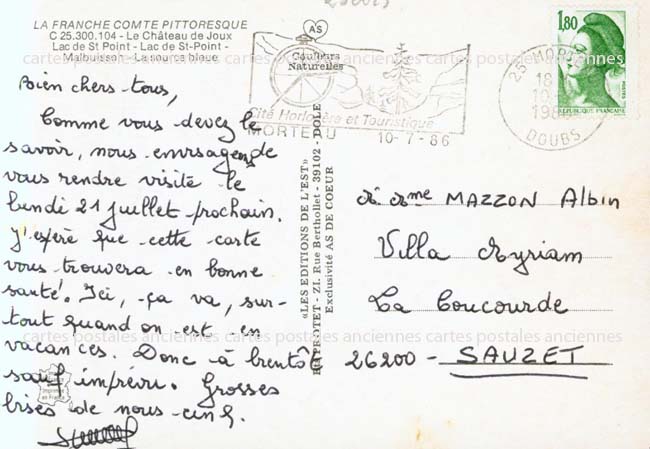 LA FRANCHE COMTE PITTORESQUE
C 25.300.104 - Le Château de Joux
Lac de St Point - Lac de St-Point -
Malbuisson - La source bleue
Bien chers tous,
Comme vous devez le
savoir, nous envisageons de
vous rendre visite le
lundi 21 juillet prochain.
J'espère que cette carte
vous trouvera en bonne
santé. Ici, ça va, sur-
tout quand on est en
vacances. Donc à bientôt
sauf imprévu. Grosses
bises de nous cinq.
AS
Couleurs
Naturelles
Cité Horlogère et Touristique
MORTEAU 10-7-86
25 MORTEAU
18 H
DOUBS
1,80
REPUBLIQUE FRANÇAISE
«LES EDITIONS DE L'EST»
- Z.I. Rue Berthollet - 39102 - DOLE
Exclusivité AS DE COEUR
M. Mme MAZZON Albin
Villa Myriam
La Coucourde
26200 - SAUZET
cartes postales anciennes cartes postales anciennes cartes postales anciennes
cartes postales anciennes cartes postales anciennes cartes postales anciennes